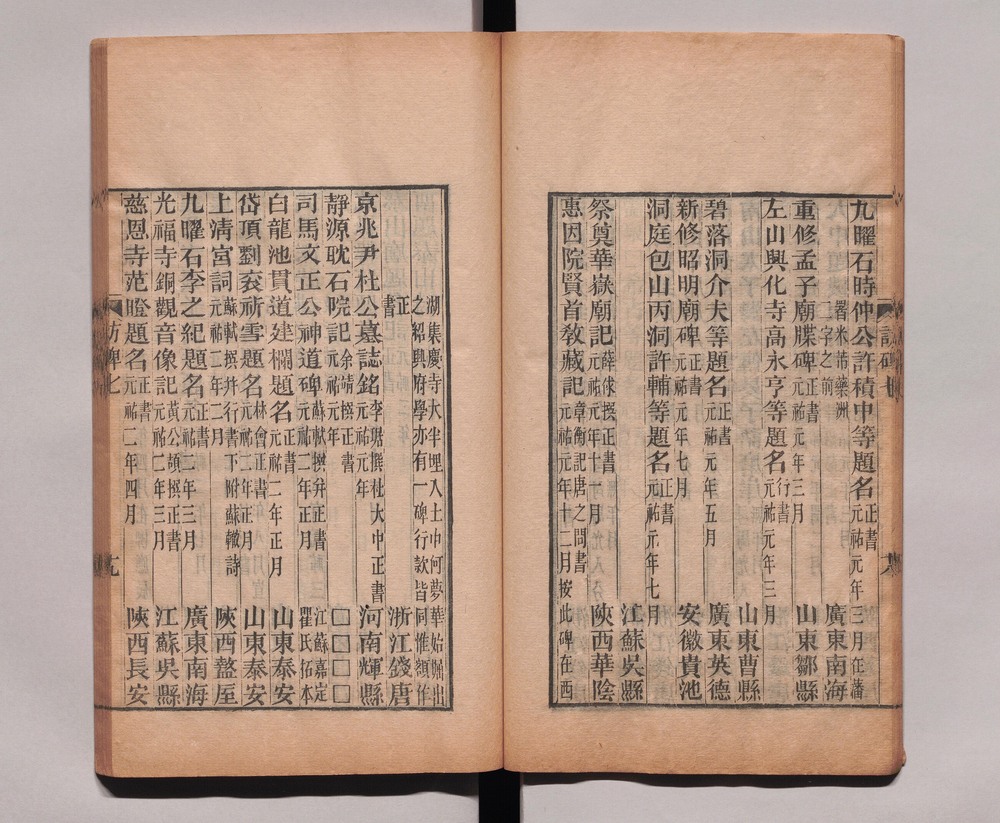 九曜石時仲公許積中等題名正書元祐元年三月在藩
署米芾藥洲
二字之前
廣東南海
重修孟子廟牒碑正書元年三月
山東鄒縣
左山興化寺高永亨等題名行書元祐元年三月
山東曹縣
碧落洞介夫等題名正書元祐元年五月
廣東英德
新修昭明廟碑正書元年七月
安徽貴池
洞庭包山丙洞許輔等題名正書元祐元年七月
江蘇吳縣
祭奠華嶽廟記薛俅撰正書元祐元年十一月
陝西華陰
惠因院賢首教藏記章衡記唐之問書元祐元年十二月按此碑在西
湖集慶寺大半埋入土中何夢華始搨出
之紹興府學亦有一碑行款皆同惟額作
正書
浙江錢唐
京兆尹杜公墓誌銘李琚撰杜大中正書元祐元年
河南輝縣
靜源耽石院記余靖撰正書元祐元年
□□□□
司馬文正公神道碑蘇軾撰幷正書元祐二年正月
江蘇嘉定
瞿氏拓本
白龍池貫道建欄題名正書元祐二年正月
山東泰安
岱頂劉袞祈雪題名林會正書元祐二年正月
山東泰安
上清宮詞蘇軾撰幷行書下附蘇轍詩元祐二年二月
陝西盩厔
九曜石李之紀題名正書元祐二年三月
廣東南海
光福寺銅觀音像記黃公頡撰正書元祐二年三月
江蘇吳縣
慈恩寺范瞪題名正書元祐二年四月
陝西長安
訪碑七